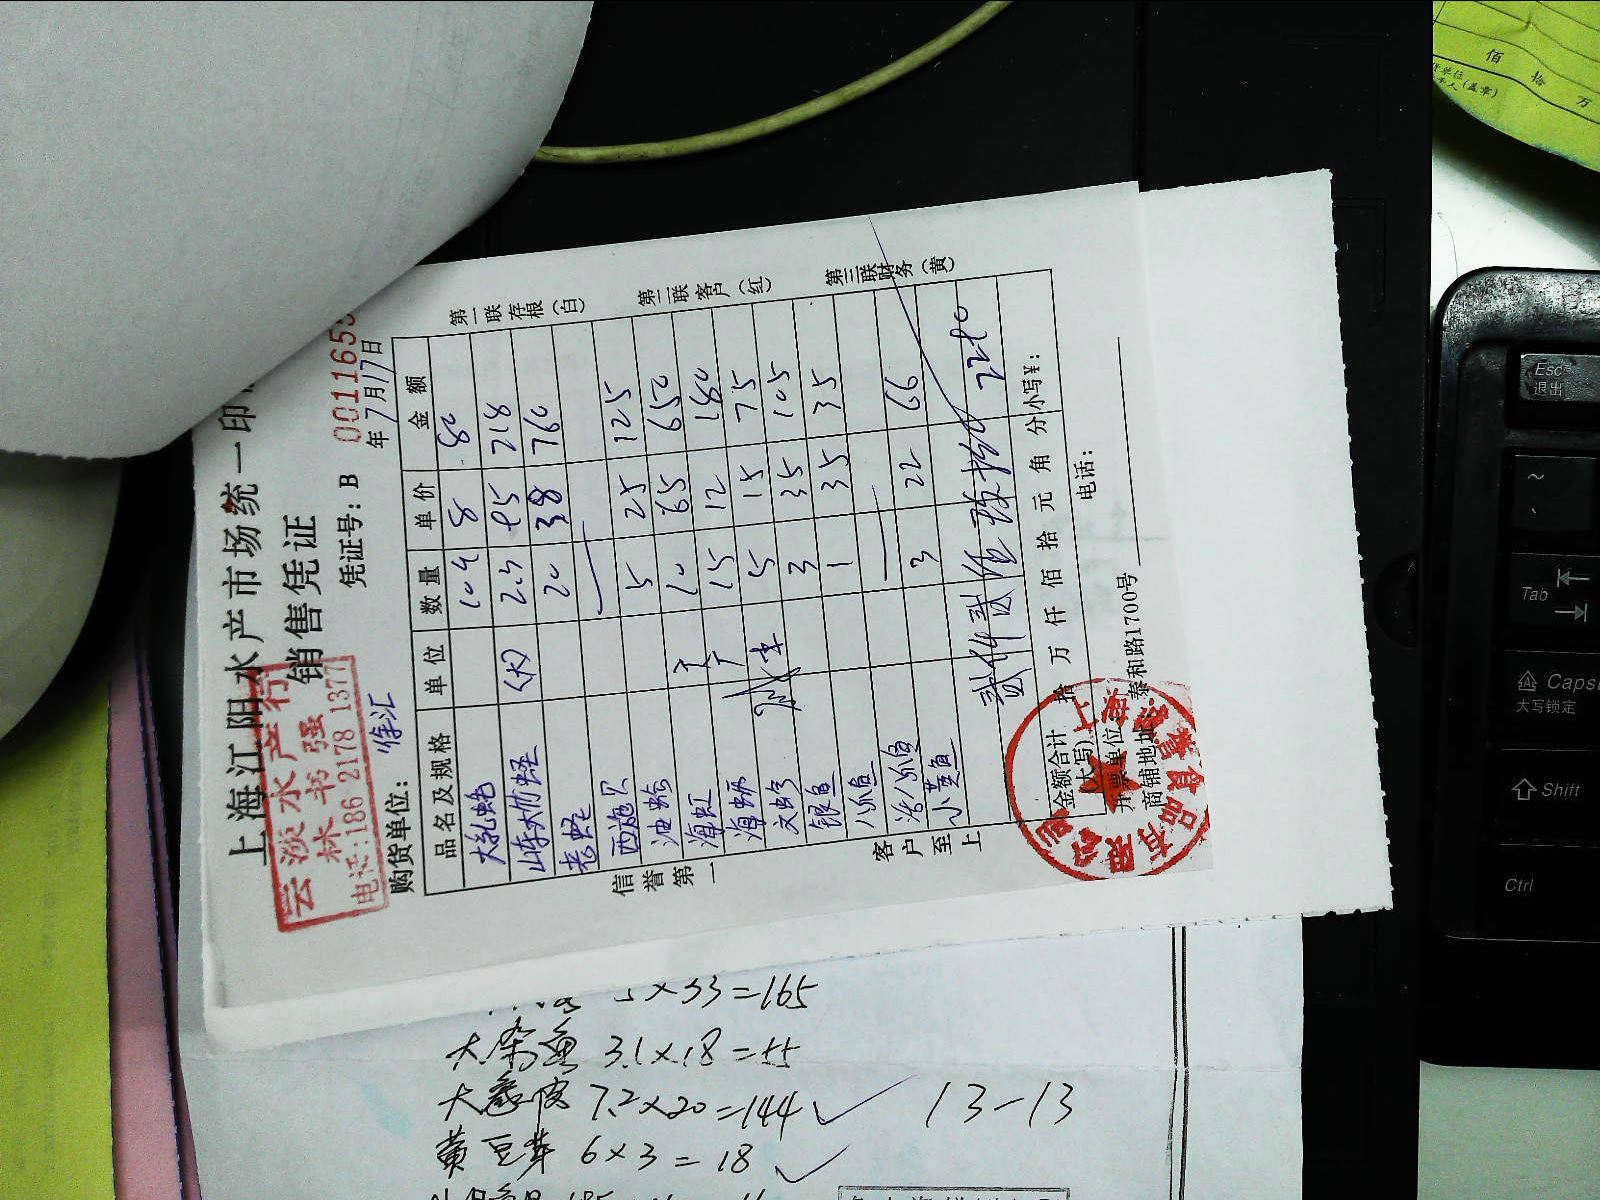 上海江阳水产市场统一印
销售凭证
云淡水产行
林书强
电话:186 2178 1377
凭证号: B 001165
年7月17日
购货单位: 徐汇
品名及规格 单位 数量 单价 金额
大乳蛏 10个 8 80
(大) 2.3 95 218
老蛏 20 38 760
西施贝 5 25 125
油蛤 10 65 650
海虹 15 12 180
海蛎 5 15 75
文蛤 3 35 105
银鱼 1 35 35
八爪鱼
活八爪鱼 3 22 66
小黄鱼
2280
金额合计(大写) 拾 万 仟 佰 拾 元 角 分 小写¥:
开票单位
商铺地址: 泰和路1700号
电话:
信誉第一
客户至上
第一联存根(白)
第二联客户(红)
第三联财务(黄)
5×33=165
大杂鱼 3.1×18=55
7.2×20=144 13-13
黄豆芽 6×3=18
佰 拾 万
(盖章)
Esc
退出
~
Tab
Caps
大写锁定
Shift
Ctrl